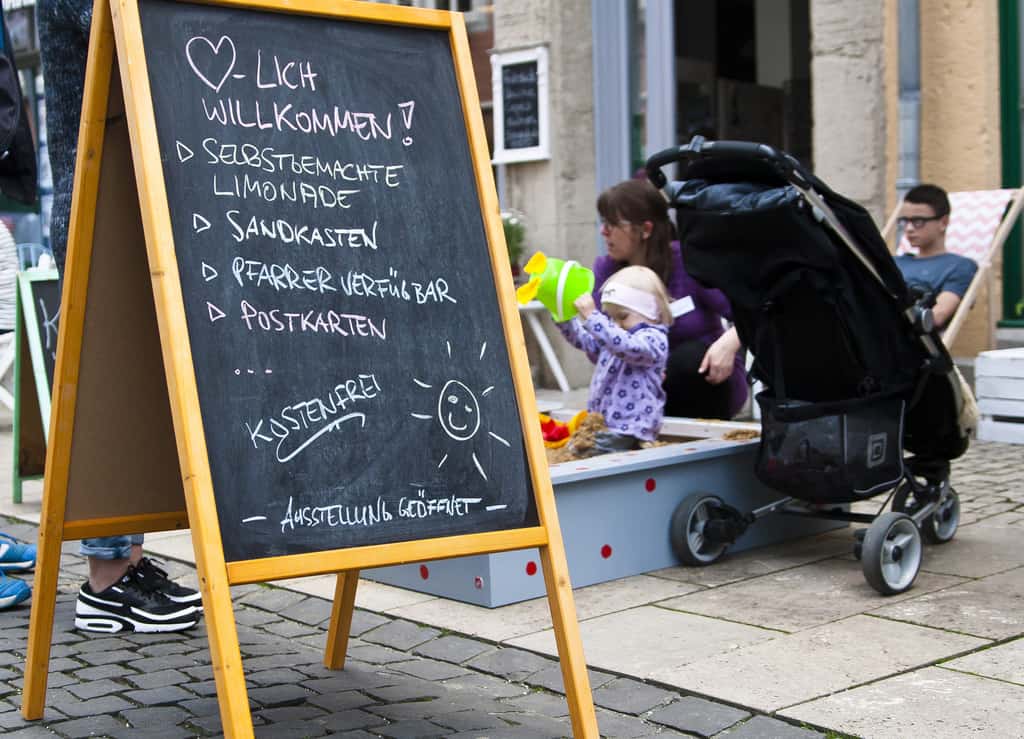 ♡-LICH
WILLKOMMEN!
▷ SELBSTGEMACHTE
LIMONADE
▷ SANDKASTEN
▷ PFARRER VERFÜGBAR
▷ POSTKARTEN
...
KOSTENFREI
– AUSSTELLUNG GEÖFFNET –